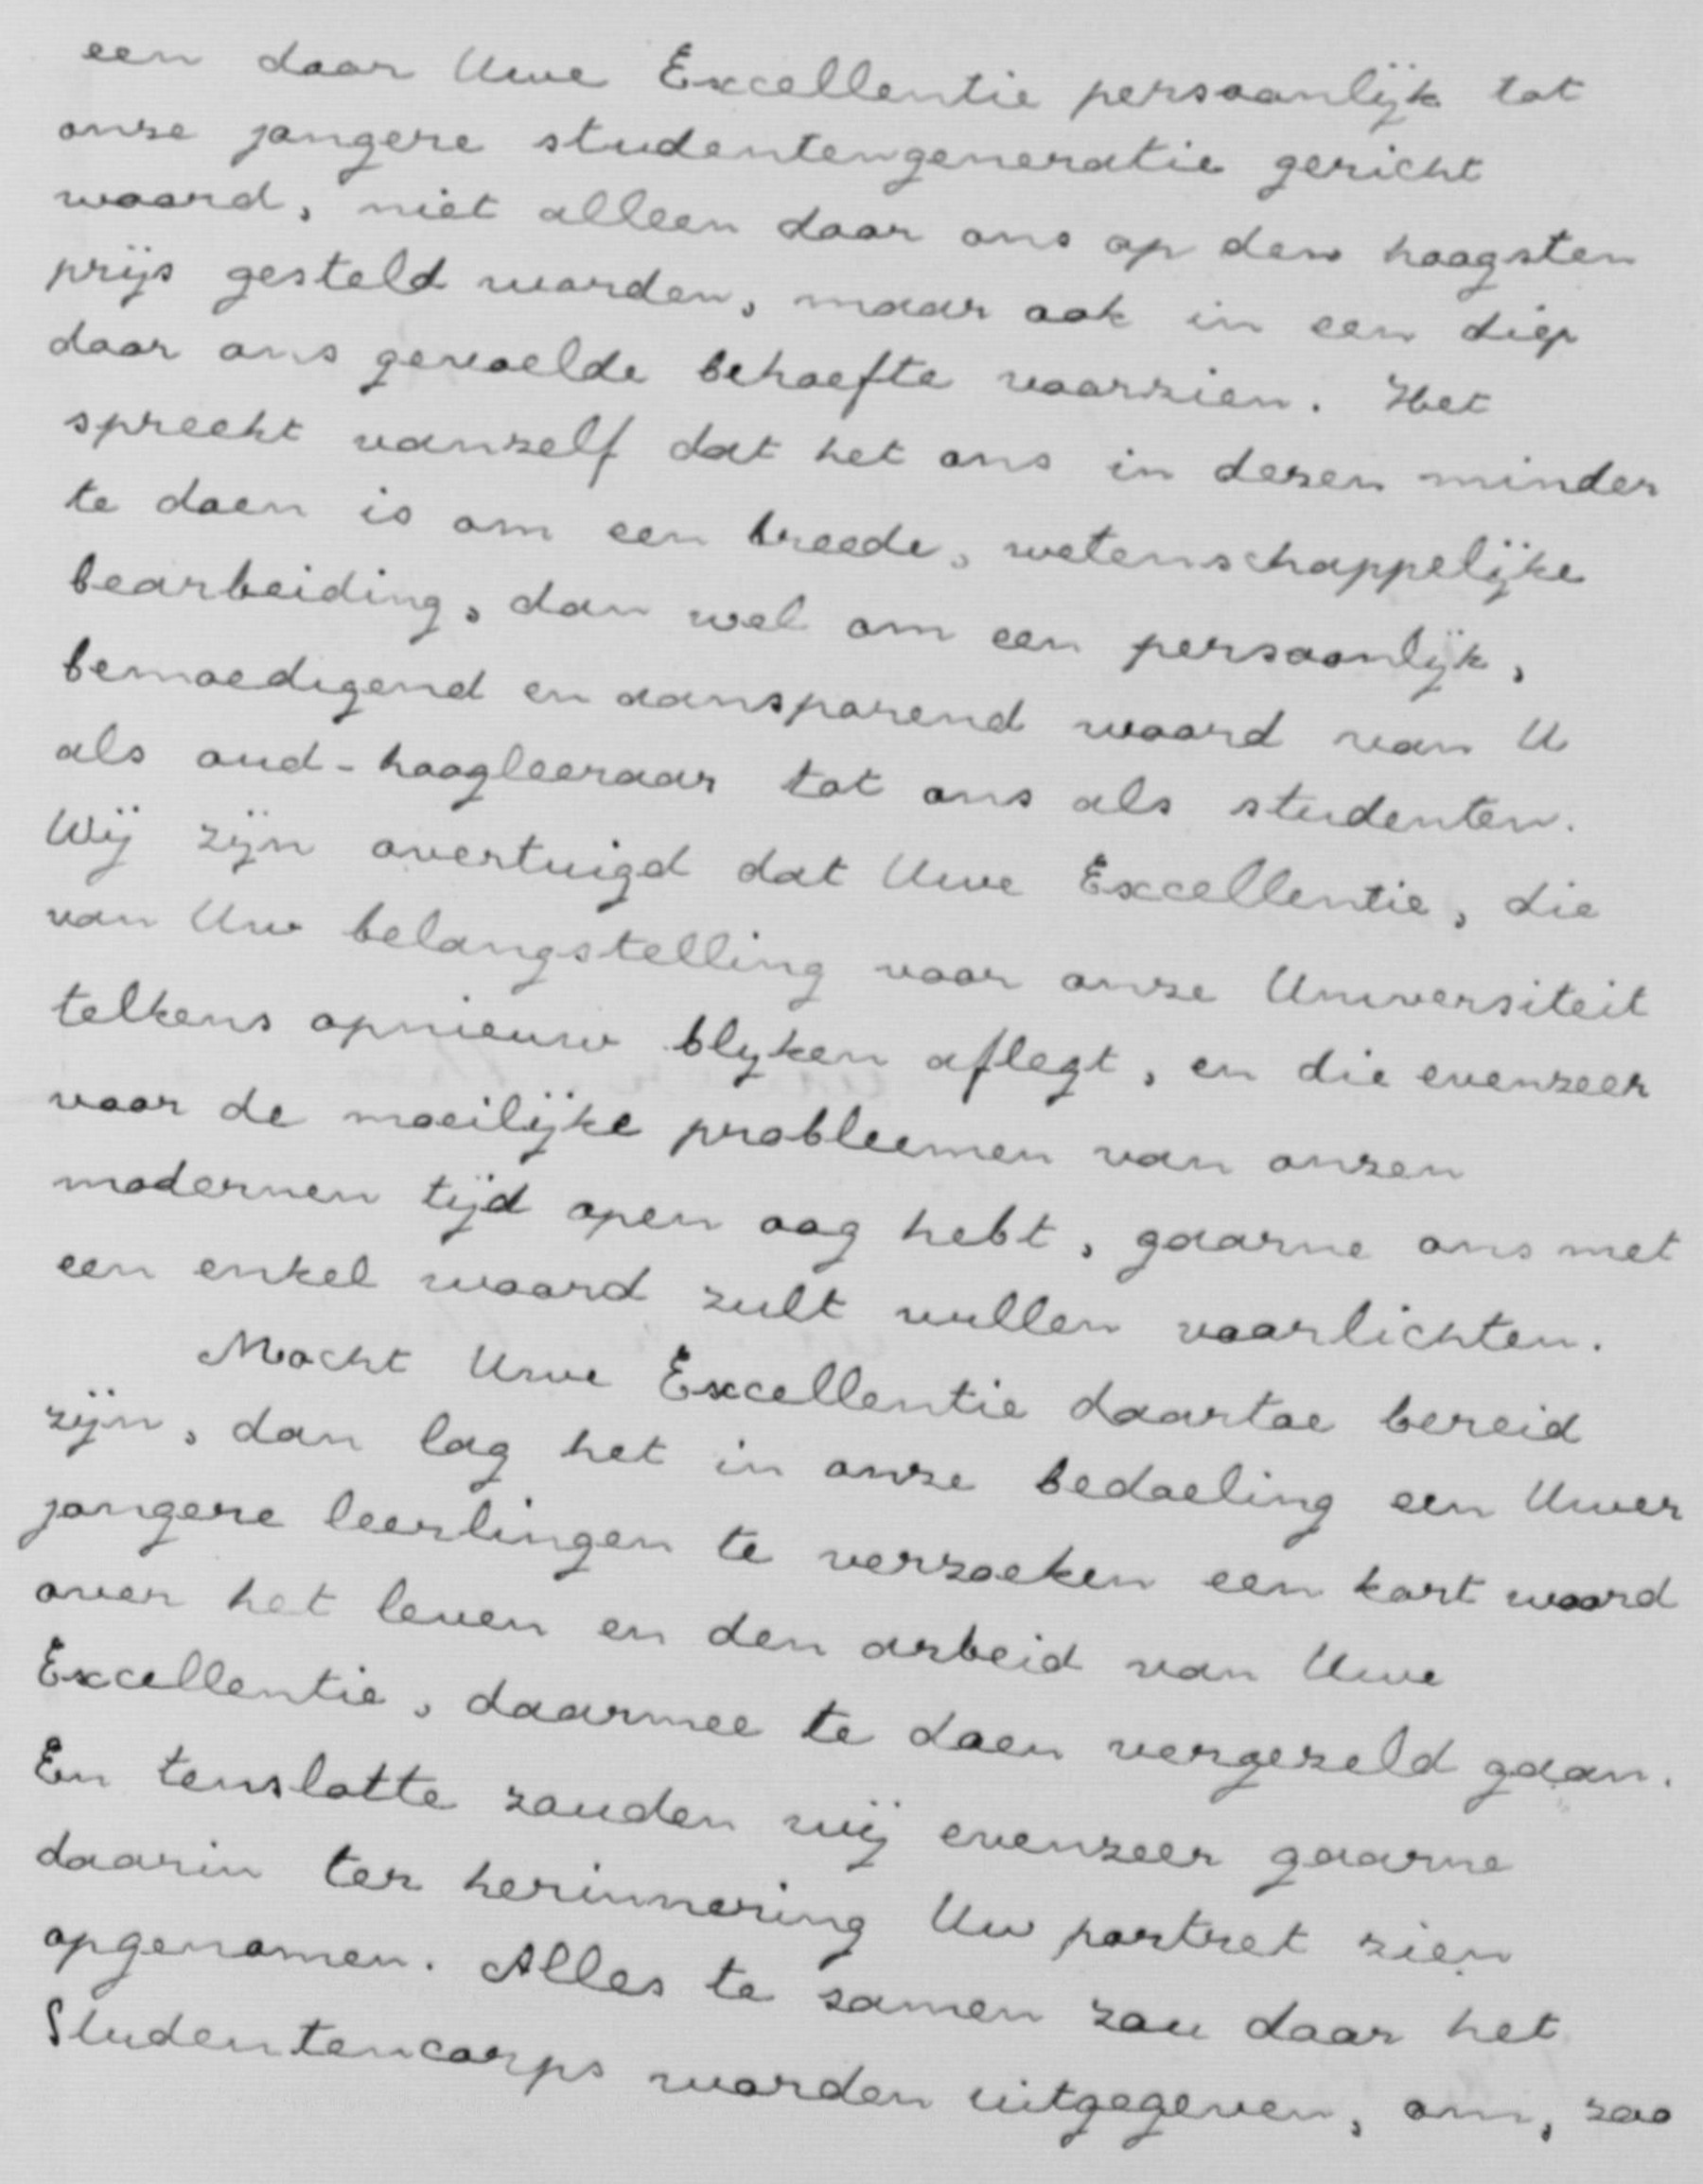 een door Uwe Excellentie persoonlijk tot
onze jongere studentengeneratie gericht
woord, niet alleen door ons op den hoogsten
prijs gesteld worden, maar ook in een diep
door ons gevoelde behoefte voorzien. Het
spreekt vanzelf dat het ons in dezen minder
te doen is om een breede, wetenschappelijke
bearbeiding, dan wel om een persoonlijk,
bemoedigend en aansporend woord van U
als oud-hoogleeraar tot ons als studenten.
Wij zijn overtuigd dat Uwe Excellentie, die
van Uw belangstelling voor onze Universiteit
telkens opnieuw blyken aflegt, en die evenzeer
voor de moeilijke probleemen van onzen
modernen tijd open oog hebt, gaarne ons met
een enkel woord zult willen voorlichten.
Mocht Uwe Excellentie daartoe bereid
zijn, dan lag het in onze bedoeling een Uwer
jongere leerlingen te verzoeken een kort woord
over het leven en den arbeid van Uwe
Excellentie, daarmee te doen vergezeld gaan.
En tenslotte zouden wij evenzeer gaarne
daarin ter herinnering Uw portret zien
opgenomen. Alles te samen zou door het
Studentencorps worden uitgegeven, om, zoo